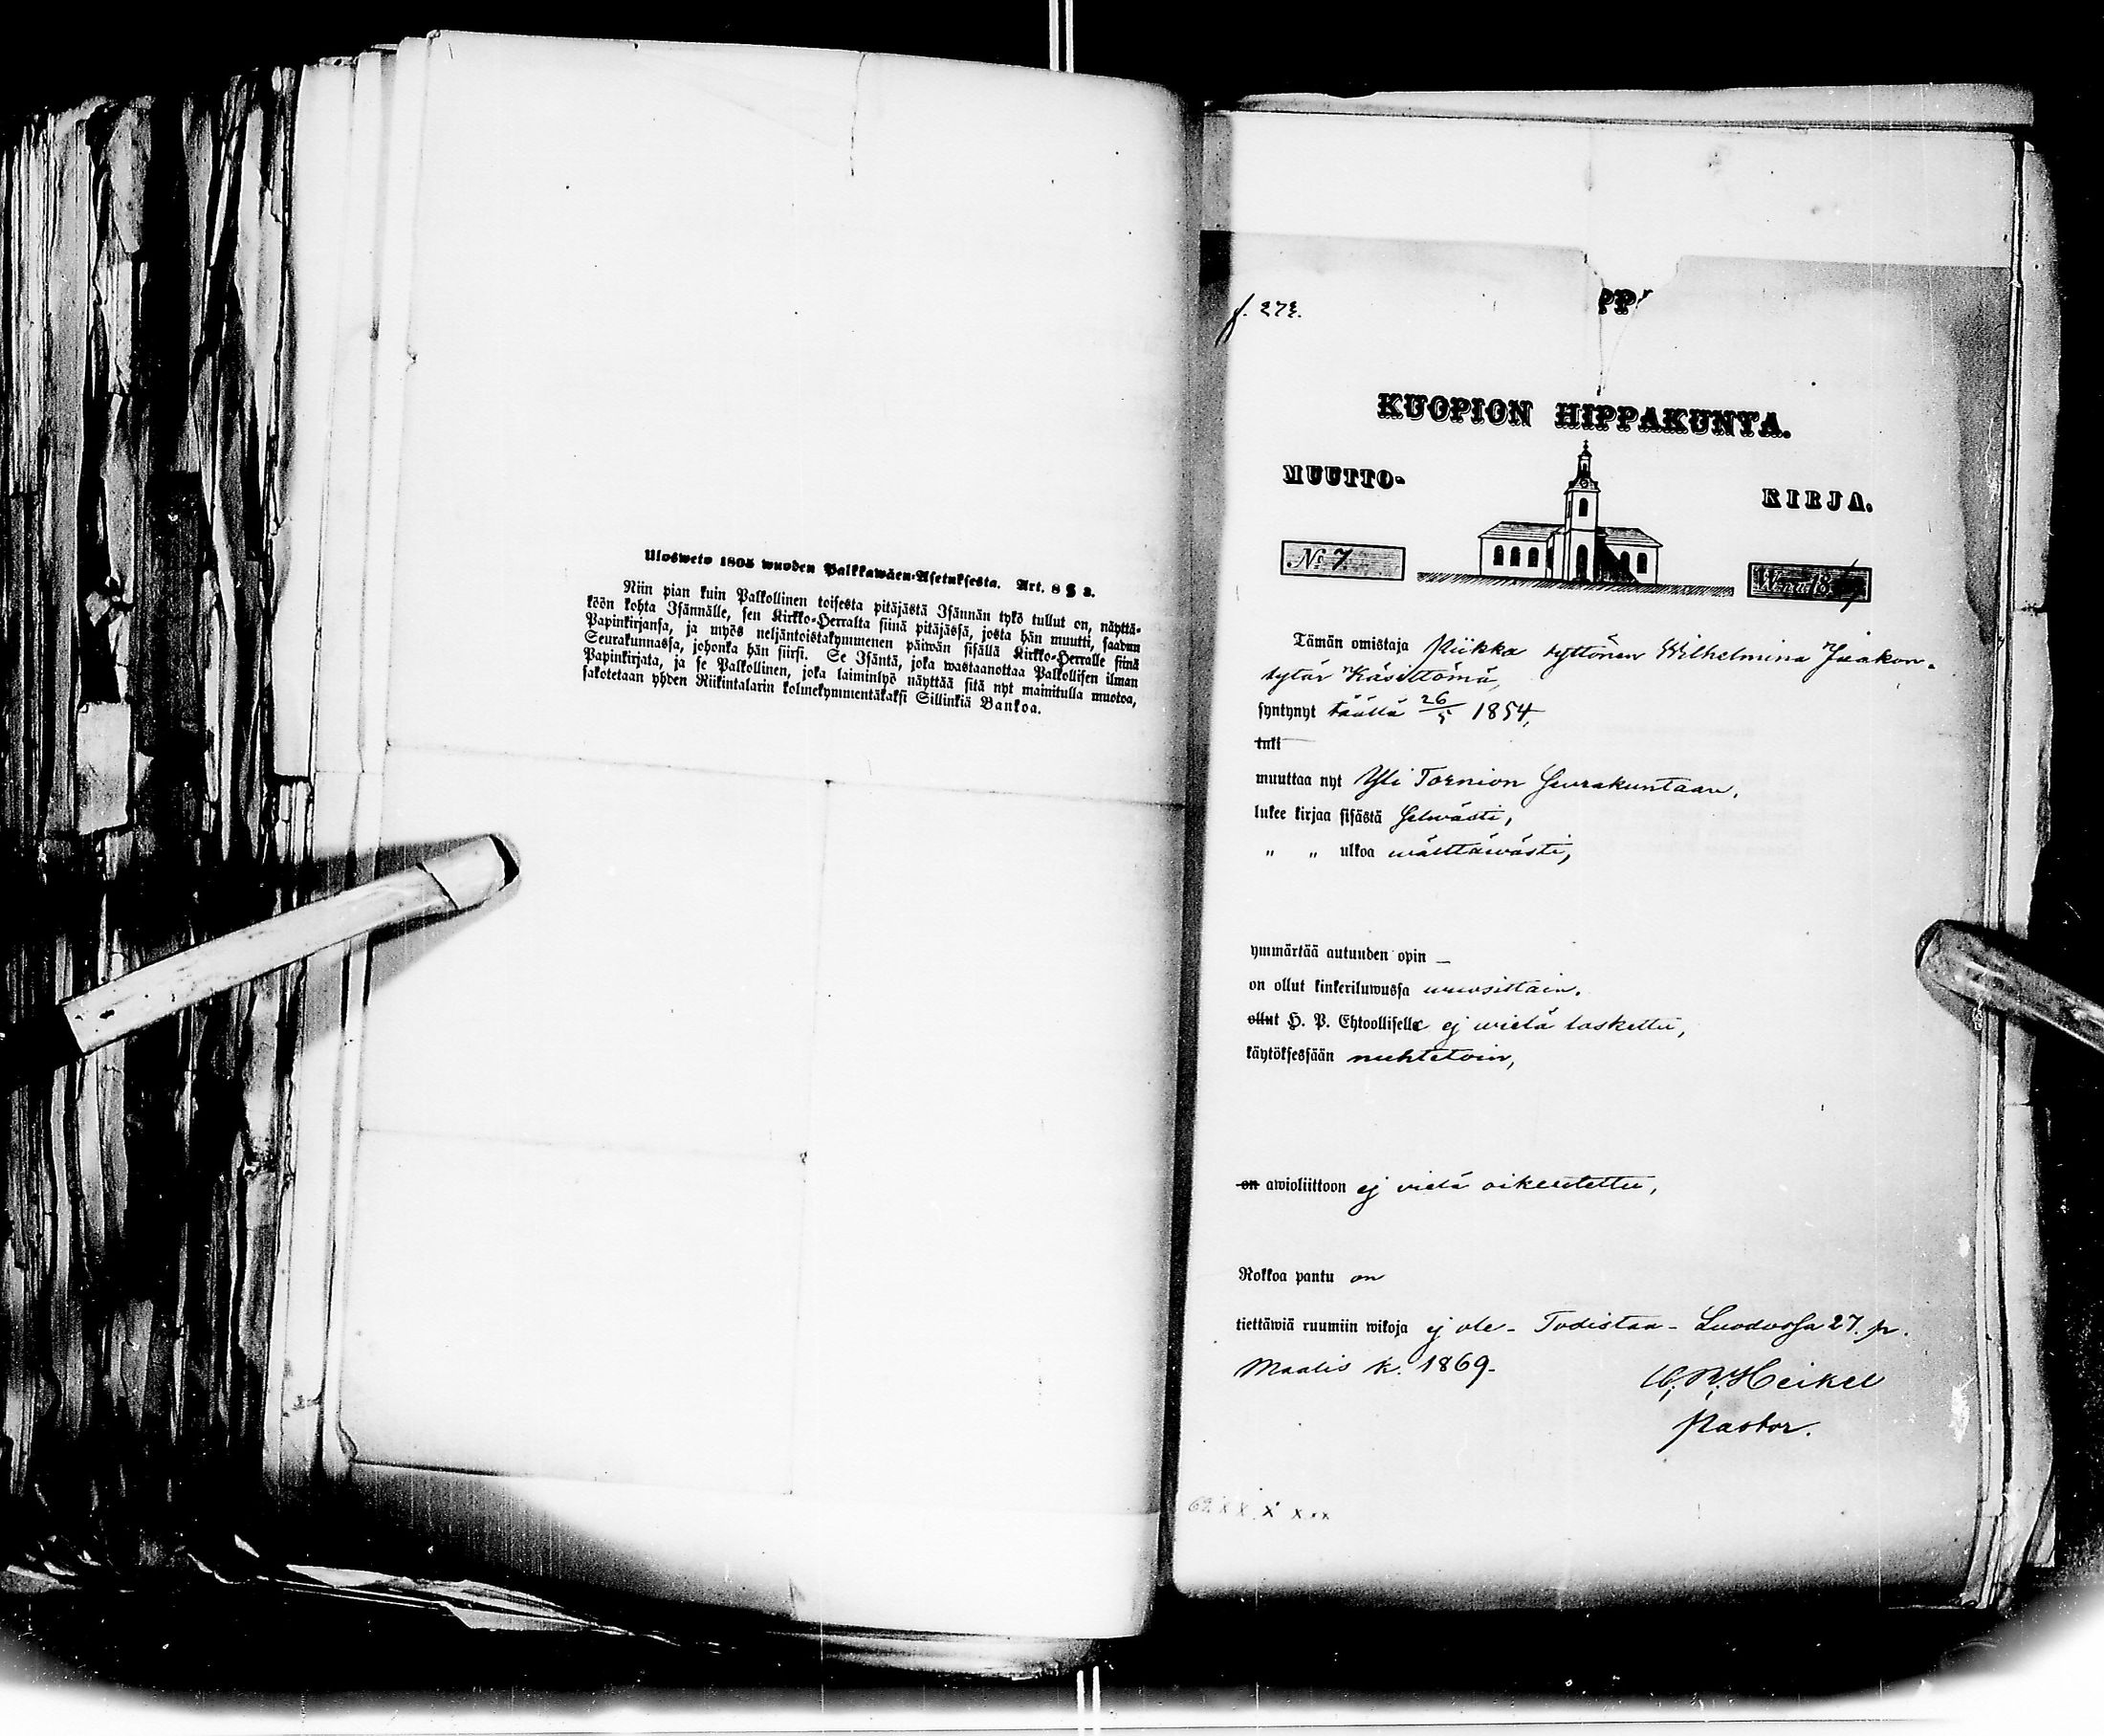 Ulosweto 1805 wuoden Palkkawäen-Asetuksesta. Art. 8 § 2.
Niin pian kuin Palkollinen toisesta pitäjästä Isännän tykö tullut on, näyttä-
köön kohta Isännälle, sen Kirkko-Herralta siinä pitäjässä, josta hän muutti, saadun
Papinkirjansa, ja myös neljäntoistakymmenen päiwän sisällä Kirkko-Herralle siinä
Seurakunnassa, johonka hän siirsi. Se Isäntä, joka wastaanottaa Palkollisen ilman
Papinkirjata, ja se Palkollinen, joka laiminlyö näyttää sitä nyt mainitulla muotoa,
sakotetaan yhden Riikintalarin kolmekymmentäkaksi Sillinkiä Bankoa.
f. 273.
PP
KUOPION HIPPAKUNTA.
MUUTTO-
KIRJA.
No 7
Wnna 18
Tämän omistaja Piikka tyttönen Wilhelmina Jaakon-
tytär Käsittömä,
syntynyt täällä 26/5 1854,
tuli
muuttaa nyt Yli Tornion Seurakuntaan,
lukee kirjaa sisästä Selwästi,
" " ulkoa wälttäwästi,
ymmärtää autuuden opin —
on ollut kinkeriluwussa wuosittain.
ollut H. P. Ehtoollisella ej wielä laskettu,
käytöksessään nuhtetoin,
on awioliittoon ej vielä oikeutettu,
Rokkoa pantu on
tiettäwiä ruumiin wikoja ej ole - Todistaa - Luodossa 27. p.
Maalis k. 1869-
Heikel
Pastor.